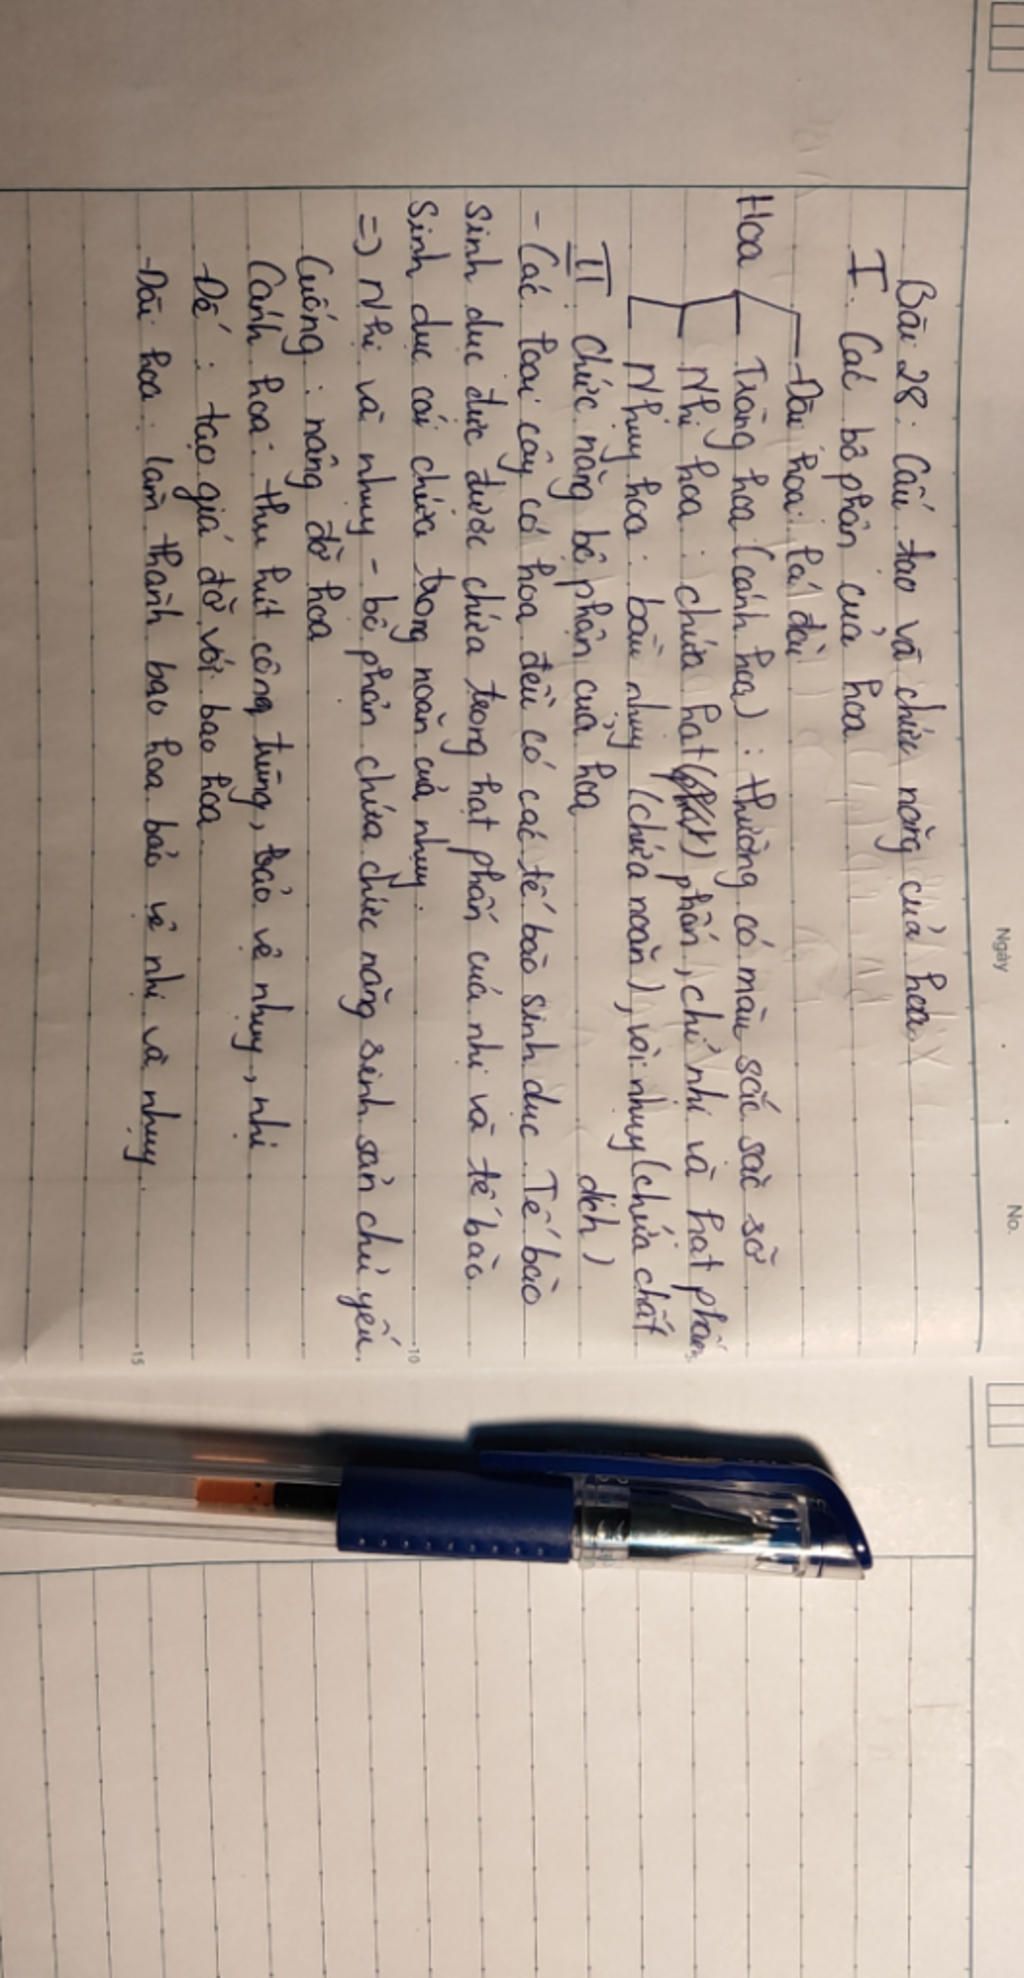 Ngày
No.
Bài 28: Cấu tạo và chức năng của hoa
I. Các bộ phận của hoa
Đài hoa: lá đài
Hoa
Tràng hoa (cánh hoa): thường có màu sắc sặc sỡ
Nhị hoa: chứa hạt phấn, chỉ nhị và hạt phấn
Nhụy hoa: bầu nhụy (chứa noãn), vòi nhụy (chứa chất
dịch)
II. Chức năng bộ phận của hoa
- Các loài cây có hoa đều có các tế bào sinh dục. Tế bào
sinh dục đực được chứa trong hạt phấn của nhị và tế bào
sinh dục cái chứa trong noãn của nhụy.
=> Nhị và nhụy - bộ phận chứa chức năng sinh sản chủ yếu.
Cuống: nâng đỡ hoa
Cánh hoa: thu hút công trùng, bảo vệ nhụy, nhị
Đế: tạo giá đỡ với bao hoa
- Đài hoa: làm thành bao hoa bảo vệ nhị và nhụy.
5
10
15